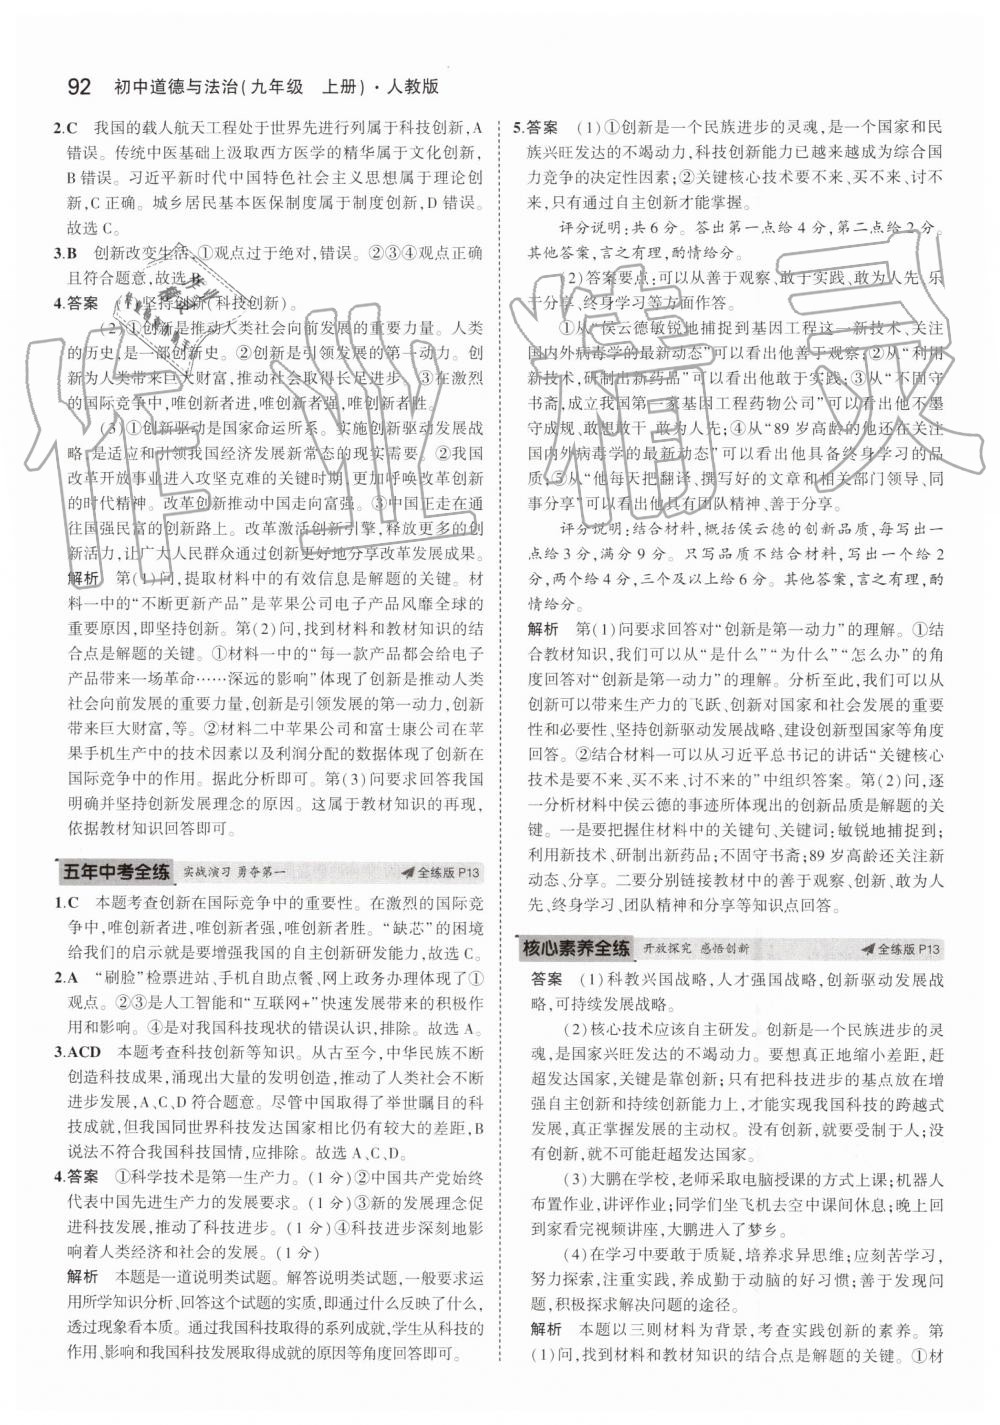 92 初中道德与法治(九年级 上册)·人教版
2.C 我国的载人航天工程处于世界先进行列属于科技创新,A
错误。传统中医基础上汲取西方医学的精华属于文化创新,
B错误。习近平新时代中国特色社会主义思想属于理论创
新,C正确。城乡居民基本医保制度属于制度创新,D错误。
故选C。
3.B 创新改变生活,①观点过于绝对,错误。②③④观点正确
且符合题意,故选B。
4.答案 (1)坚持创新(科技创新)。
(2)①创新是推动人类社会向前发展的重要力量。人类
的历史,是一部创新史。②创新是引领发展的第一动力。创
新为人类带来巨大财富,推动社会取得长足进步。③在激烈
的国际竞争中,唯创新者进,唯创新者强,唯创新者胜。
(3)①创新驱动是国家命运所系。实施创新驱动发展战
略,是适应和引领我国经济发展新常态的现实需要。②我国
改革开放事业进入攻坚克难的关键时期,更加呼唤改革创新
的时代精神。改革创新推动中国走向富强。③中国正走在通
往国强民富的创新路上。改革激活创新引擎,释放更多的创
新活力,让广大人民群众通过创新更好地分享改革发展成果。
解析 第(1)问,提取材料中的有效信息是解题的关键。材
料一中的“不断更新产品”是苹果公司电子产品风靡全球的
重要原因,即坚持创新。第(2)问,找到材料和教材知识的结
合点是解题的关键。①材料一中的“每一款产品都会给电子
产品带来一场革命……深远的影响”体现了创新是推动人类
社会向前发展的重要力量,创新是引领发展的第一动力,创新
带来巨大财富,等。②材料二中苹果公司和富士康公司在苹
果手机生产中的技术因素以及利润分配的数据体现了创新在
国际竞争中的作用。据此分析即可。第(3)问要求回答我国
明确并坚持创新发展理念的原因。这属于教材知识的再现,
依据教材知识回答即可。
五年中考全练 实战演习 勇夺第一 全练版P13
1.C 本题考查创新在国际竞争中的重要性。在激烈的国际竞
争中,唯创新者进,唯创新者强,唯创新者胜。“缺芯”的困境
给我们的启示就是要增强我国的自主创新研发能力,故选C。
2.A “刷脸”检票进站、手机自助点餐、网上政务办理体现了①
观点。②③是人工智能和“互联网+”快速发展带来的积极作
用和影响。④是对我国科技现状的错误认识,排除。故选A。
3.ACD 本题考查科技创新等知识。从古至今,中华民族不断
创造科技成果,涌现出大量的发明创造,推动了人类社会不断
进步发展,A、C、D符合题意。尽管中国取得了举世瞩目的科
技成就,但我国同世界科技发达国家相比仍有较大的差距,B
说法不符合我国科技国情,应排除。故选A、C、D。
4.答案 ①科学技术是第一生产力。(1分)②中国共产党始终
代表中国先进生产力的发展要求。(1分)③新的发展理念促
进科技发展,推动了科技进步。(1分)④科技进步深刻地影
响着人类经济和社会的发展。(1分)
解析 本题是一道说明类试题。解答说明类试题,一般要求运
用所学知识分析、回答这个试题的实质,即通过什么反映了什么,
透过现象看本质。通过我国科技取得的系列成就,学生从科技的
作用、我国科技和我国科技发展取得成就的原因等角度回答即可。
5.答案 (1)①创新是一个民族进步的灵魂,是一个国家和民
族兴旺发达的不竭动力,科技创新能力已越来越成为综合国
力竞争的决定性因素;②关键核心技术要不来、买不来、讨不
来,只有通过自主创新才能掌握。
评分说明:共6分。答出第一点给4分,第二点给2分。
其他答案,言之有理,酌情给分。
(2)答案要点:可以从善于观察、敢于实践、敢为人先、乐
于分享、终身学习等方面作答。
①从“侯云德敏锐地捕捉到基因工程这一新技术、关注
国内外病毒学的最新动态”可以看出他善于观察;②从“利用
新技术,研制出新药品”可以看出他敢于实践;③从“不固守
书斋,成立我国第一家基因工程药物公司”可以看出他不墨
守成规、敢想敢干、敢为人先;④从“89岁高龄的他还在关注
国内外病毒学的最新动态”可以看出他具备终身学习的品
质;⑤从“他每天把翻译、撰写好的文章和相关部门领导、同
事分享”可以看出他具有团队精神、善于分享。
评分说明:结合材料,概括侯云德的创新品质,每写出一
点给3分,满分9分。只写品质不结合材料,写出一个给2
分,两个给4分,三个及以上给6分。其他答案,言之有理,酌
情给分。
解析 第(1)问要求回答对“创新是第一动力”的理解。①结
合教材知识,我们可以从“是什么”“为什么”“怎么办”的角
度回答对“创新是第一动力”的理解。分析至此,我们可以从
创新可以带来生产力的飞跃、创新对国家和社会发展的重要
性和必要性、坚持创新驱动发展战略、建设创新型国家等角度
回答。②结合材料一可以从习近平总书记的讲话“关键核心
技术是要不来、买不来、讨不来的”中组织答案。第(2)问,逐
一分析材料中侯云德的事迹所体现出的创新品质是解题的关
键。一是要把握住材料中的关键句、关键词:敏锐地捕捉到;
利用新技术、研制出新药品;不固守书斋;89岁高龄还在关注
新动态、分享。二要分别链接教材中的善于观察、创新、敢为人
先、终身学习、团队精神和分享等知识点回答。
核心素养全练 开放探究 感悟创新 全练版P13
答案 (1)科教兴国战略,人才强国战略,创新驱动发展战
略,可持续发展战略。
(2)核心技术应该自主研发。创新是一个民族进步的灵
魂,是国家兴旺发达的不竭动力。要想真正地缩小差距,赶
超发达国家,关键是靠创新;只有把科技进步的基点放在增
强自主创新和持续创新能力上,才能实现我国科技的跨越式
发展,真正掌握发展的主动权。没有创新,就要受制于人;没有
创新,就不可能赶超发达国家。
(3)大鹏在学校,老师采取电脑授课的方式上课;机器人
布置作业,讲评作业;同学们坐飞机去空中课间休息,晚上回
到家看完视频讲座,大鹏进入了梦乡。
(4)在学习中要敢于质疑,培养求异思维;应刻苦学习,
努力探索,注重实践,养成勤于动脑的好习惯;善于发现问
题,积极探求解决问题的途径。
解析 本题以三则材料为背景,考查实践创新的素养。第
(1)问,找到材料和教材知识的结合点是解题的关键。①材
作业精灵